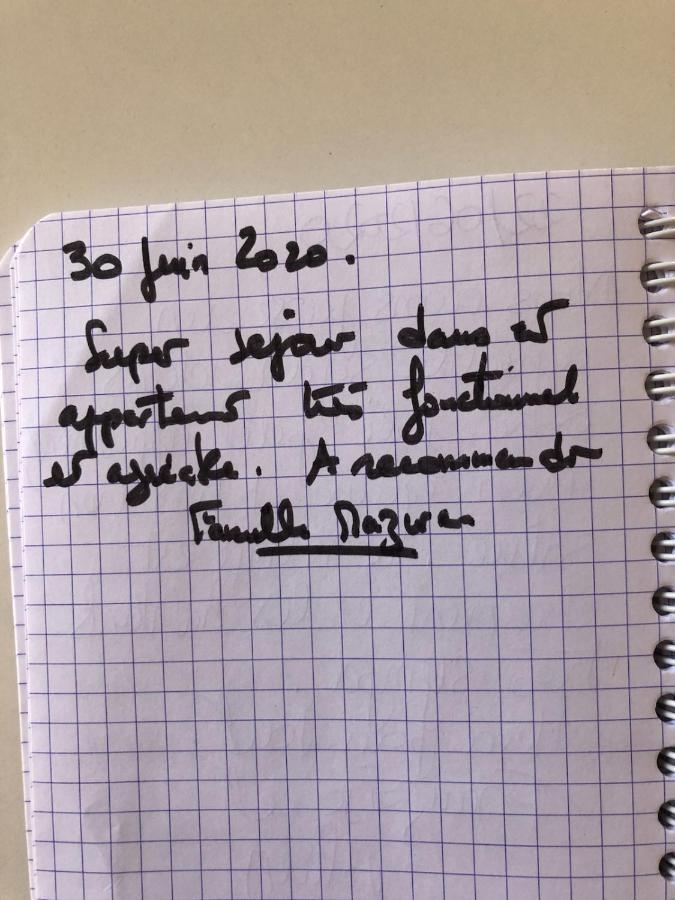 30 Juin 2020.
Super sejour dans et
appartement très fonctionnel
et agréable. A recommander
Famille